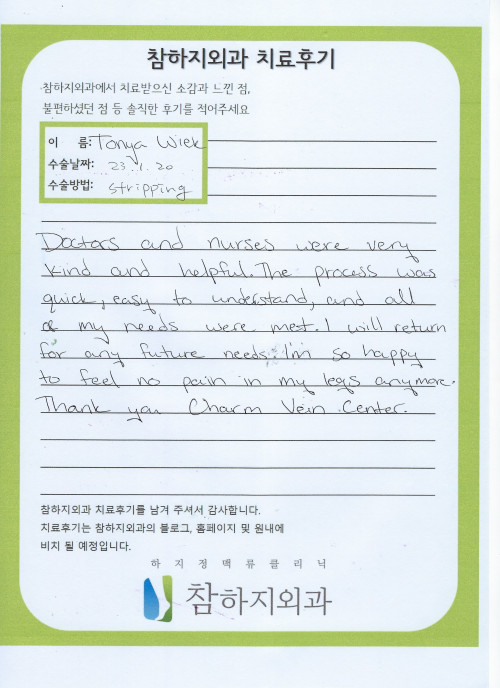 참하지외과 치료후기
참하지외과에서 치료받으신 소감과 느낀 점,
불편하셨던 점 등 솔직한 후기를 적어주세요
이 름: Tonya Wiek
수술날짜: 23. 1. 20
수술방법: stripping
Doctors and nurses were very
kind and helpful. The process was
quick, easy to understand, and all
of my needs were met. I will return
for any future needs. I'm so happy
to feel no pain in my legs anymore.
Thank you Charm Vein Center.
참하지외과 치료후기를 남겨 주셔서 감사합니다.
치료후기는 참하지외과의 블로그, 홈페이지 및 원내에
비치 될 예정입니다.
하지정맥류클리닉
참하지외과